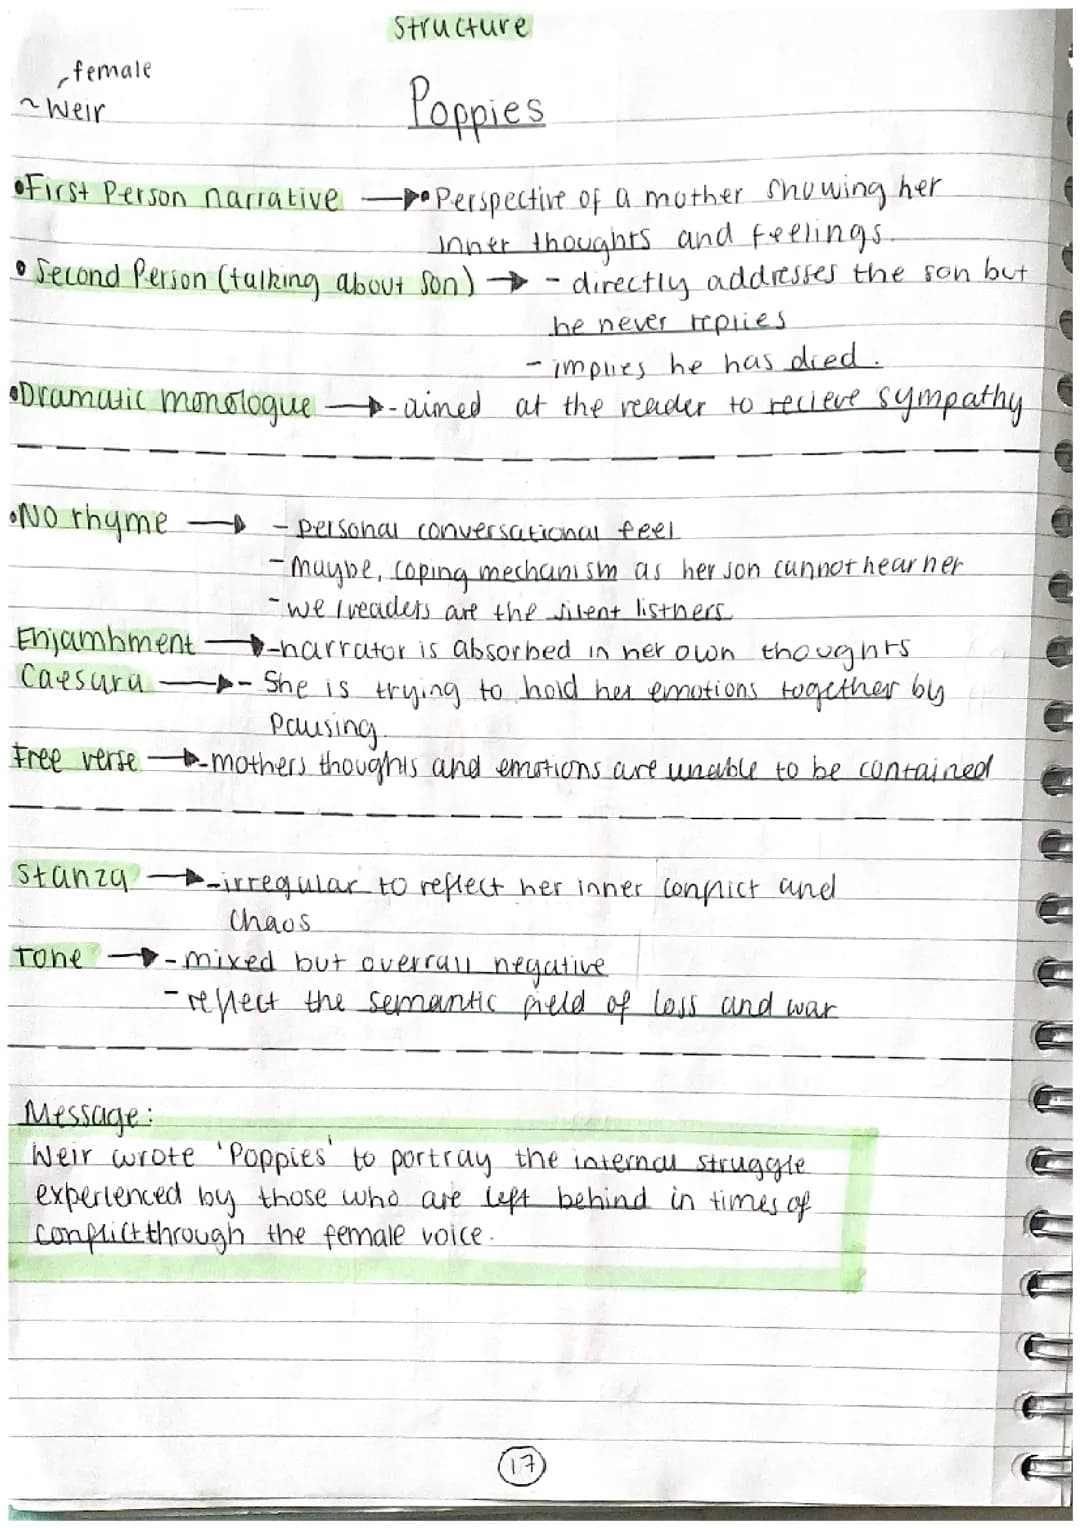 Structure
female
~ Weir
Poppies
•First Person narrative → •Perspective of a mother showing her
inner thoughts and feelings.
• Second Person (talking about son) → - directly addresses the son but
he never replies
- implies he has died.
•Dramatic monologue → -aimed at the reader to recieve sympathy
•No rhyme → - personal conversational feel
-maybe, coping mechanism as her son cannot hear her
-we (readers are the silent listners
Enjambment → -narrator is absorbed in her own thoughts
Caesura → - She is trying to hold her emotions together by
Pausing.
Free verse → -mothers thoughts and emotions are unable to be contained
Stanza → -irregular to reflect her inner conflict and
chaos
Tone → -mixed but overrall negative
-reflect the semantic field of loss and war
Message:
Weir wrote 'Poppies' to portray the internal struggle
experienced by those who are left behind in times of
conflict through the female voice.
17